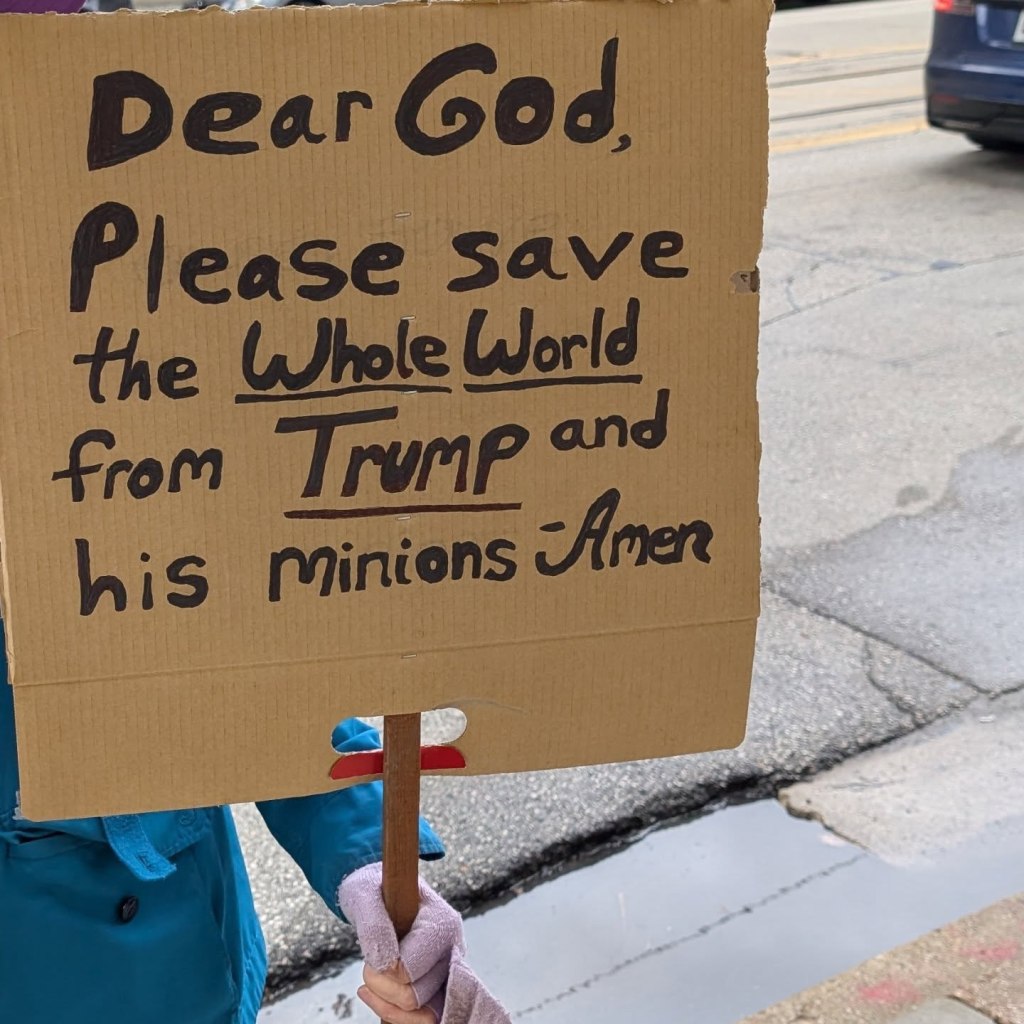 Dear God,
Please save
the Whole World
from Trump and
his minions -Amen